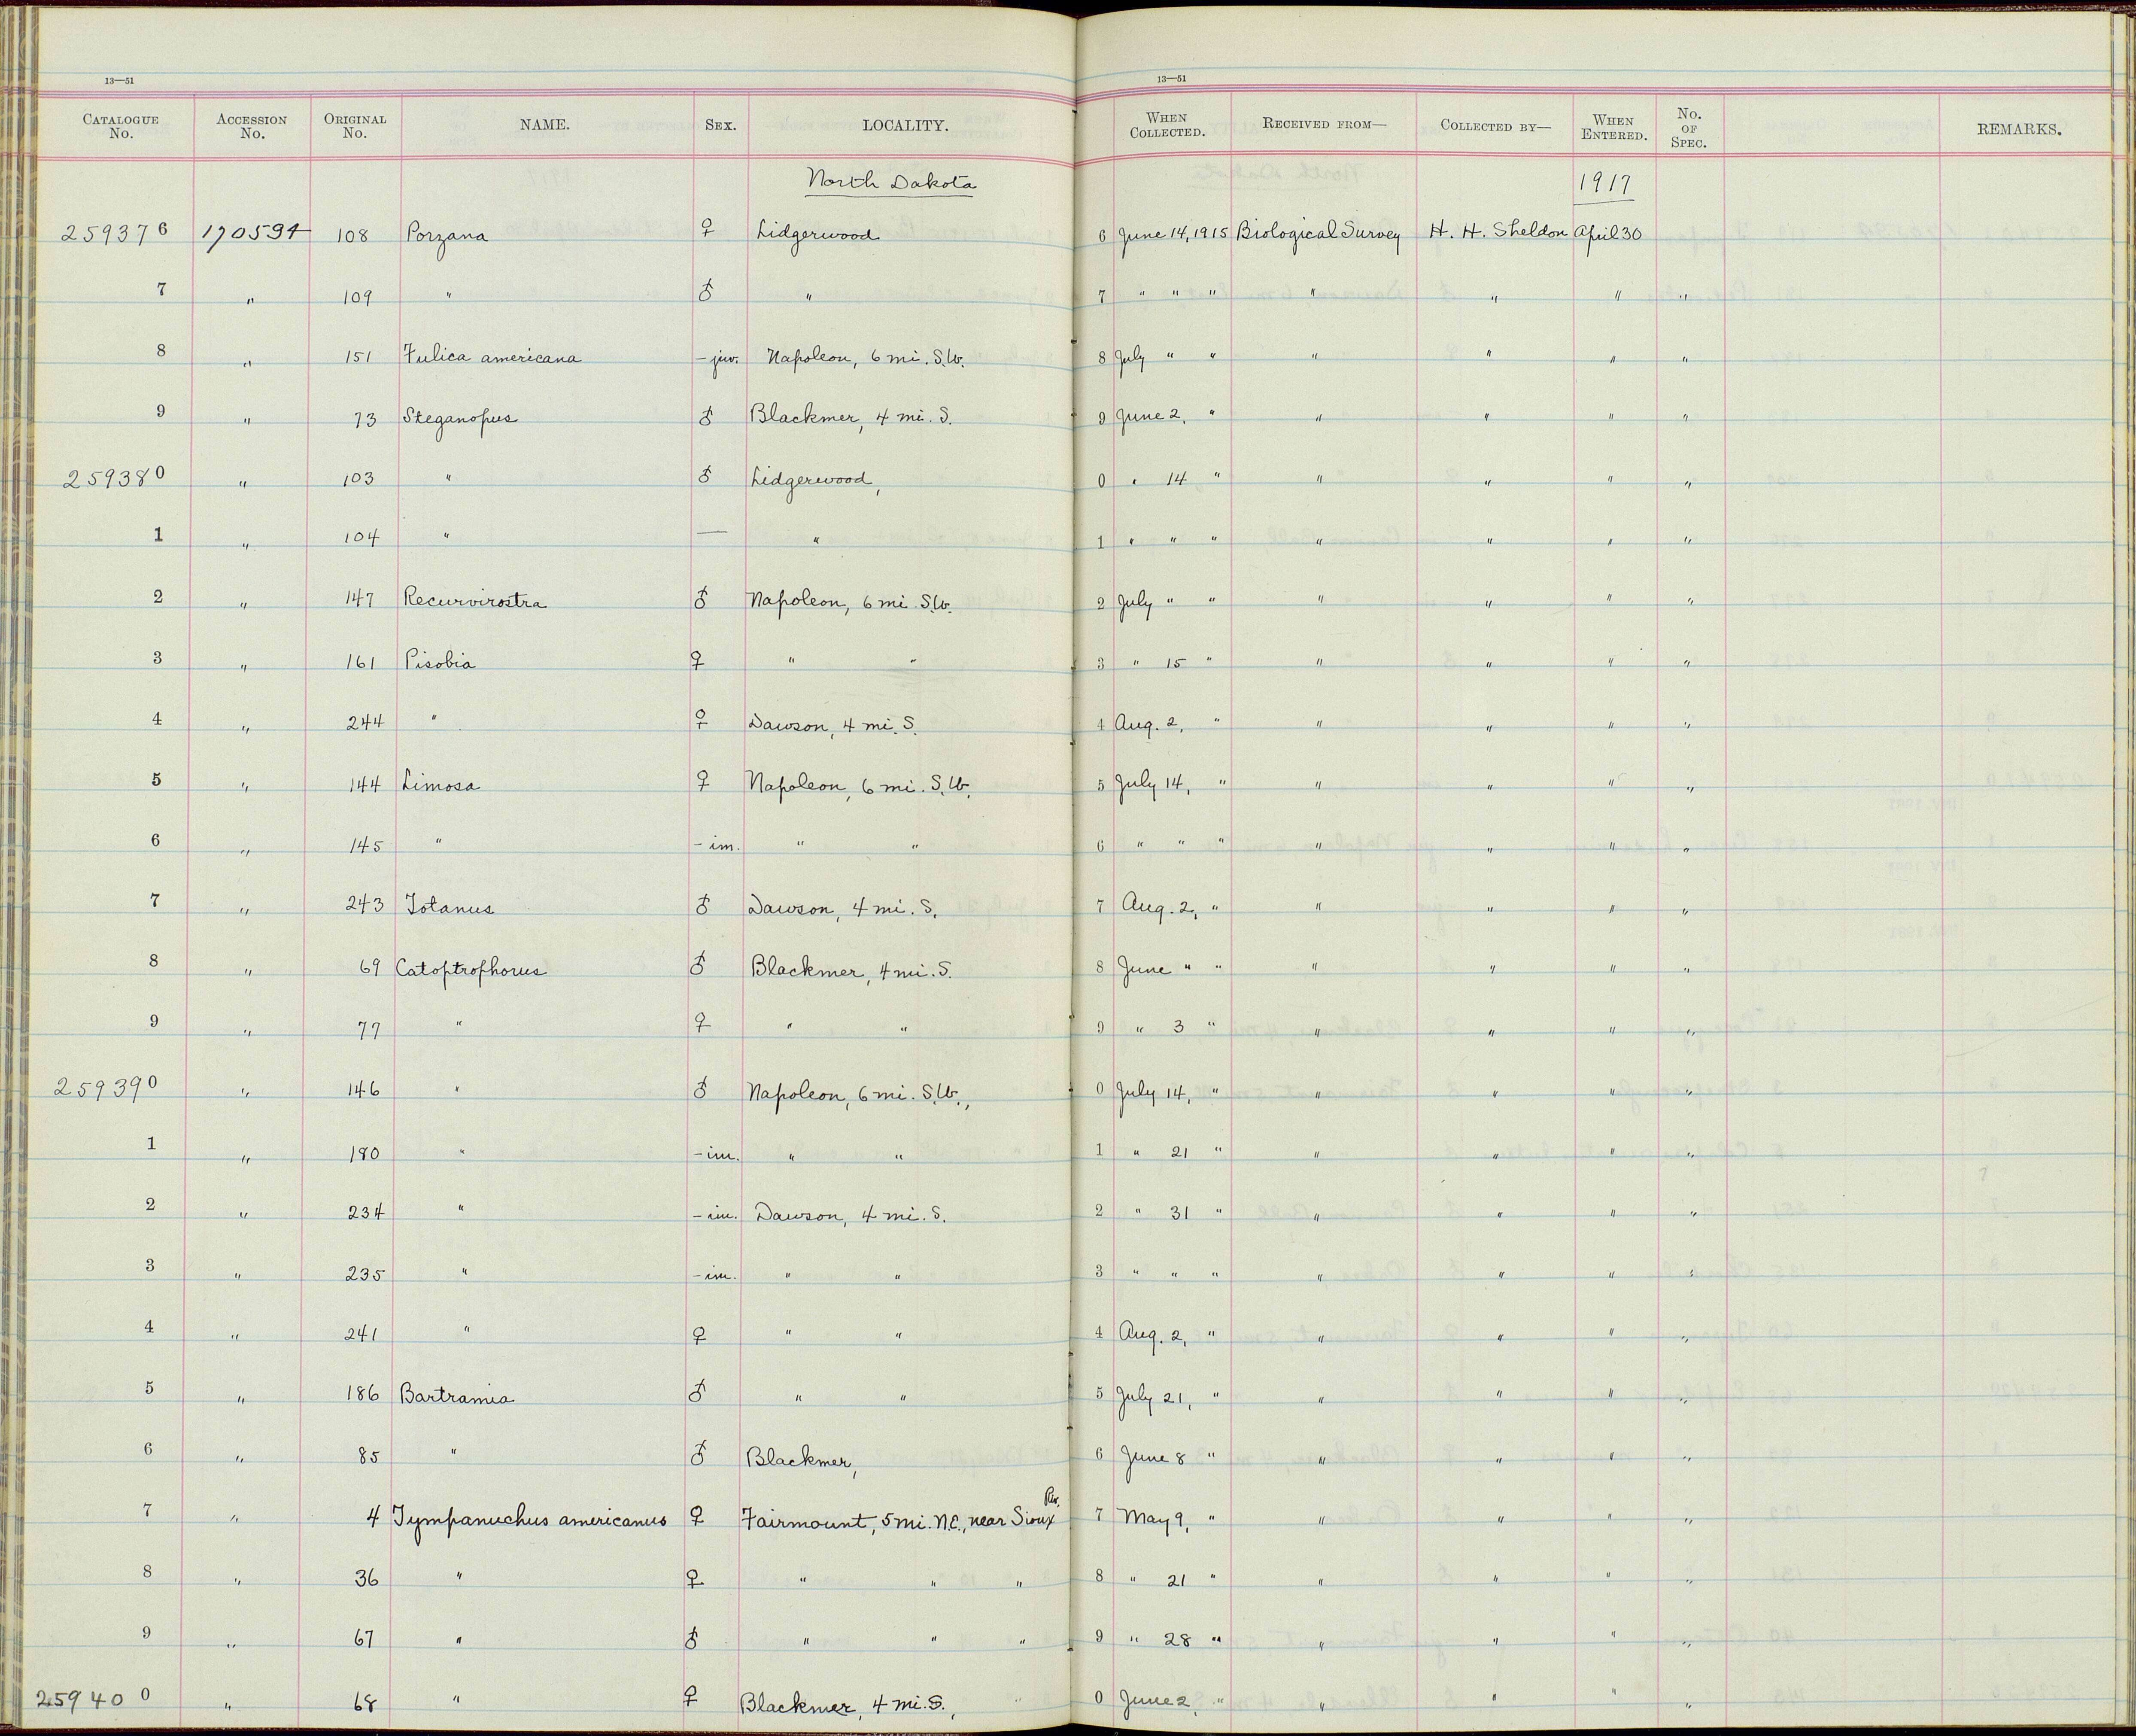 13—51 13—51
CATALOGUE No. ACCESSION No. ORIGINAL No. NAME. SEX. LOCALITY. WHEN COLLECTED. RECEIVED FROM— COLLECTED BY— WHEN ENTERED. No. OF SPEC. REMARKS.
North Dakota 1917
259376 170594 108 Porzana ♀ Lidgerwood 6 June 14, 1915 Biological Survey H. H. Sheldon April 30
7 " 109 " ♂ " 7 " " " " " " "
8 " 151 Fulica americana - juv. Napoleon, 6 mi. S.W. 8 July " " " " " "
9 " 73 Steganopus ♂ Blackmer, 4 mi. S. 9 June 2, " " " " "
259380 " 103 " ♂ Lidgerwood, 0 " 14 " " " " "
1 " 104 " — " 1 " " " " " " "
2 " 147 Recurvirostra ♂ Napoleon, 6 mi. S.W. 2 July " " " " " "
3 " 161 Pisobia ♀ " " 3 " 15 " " " " "
4 " 244 " ♀ Dawson, 4 mi. S. 4 Aug. 2, " " " " "
5 " 144 Limosa ♀ Napoleon, 6 mi. S.W. 5 July 14, " " " " "
6 " 145 " - im. " " 6 " " " " " " "
7 " 243 Totanus ♂ Dawson, 4 mi. S. 7 Aug. 2, " " " " "
8 " 69 Catoptrophorus ♂ Blackmer, 4 mi. S. 8 June " " " " " "
9 " 77 " ♀ " " 9 " 3 " " " " "
259390 " 146 " ♂ Napoleon, 6 mi. S.W., 0 July 14, " " " " "
1 " 180 " - im. " " 1 " 21 " " " " "
2 " 234 " - im. Dawson, 4 mi. S. 2 " 31 " " " " "
3 " 235 " - im. " " 3 " " " " " " "
4 " 241 " ♀ " " 4 Aug. 2, " " " " "
5 " 186 Bartramia ♂ " " 5 July 21, " " " " "
6 " 85 " ♂ Blackmer, 6 June 8 " " " " "
7 " 4 Tympanuchus americanus ♀ Fairmount, 5 mi. N.E., near Sioux Riv. 7 May 9, " " " " "
8 " 36 " ♀ " " " 8 " 21 " " " " "
9 " 67 " ♂ " " " 9 " 28 " " " " "
259400 " 68 " ♀ Blackmer, 4 mi. S., 0 June 2, " " " " "